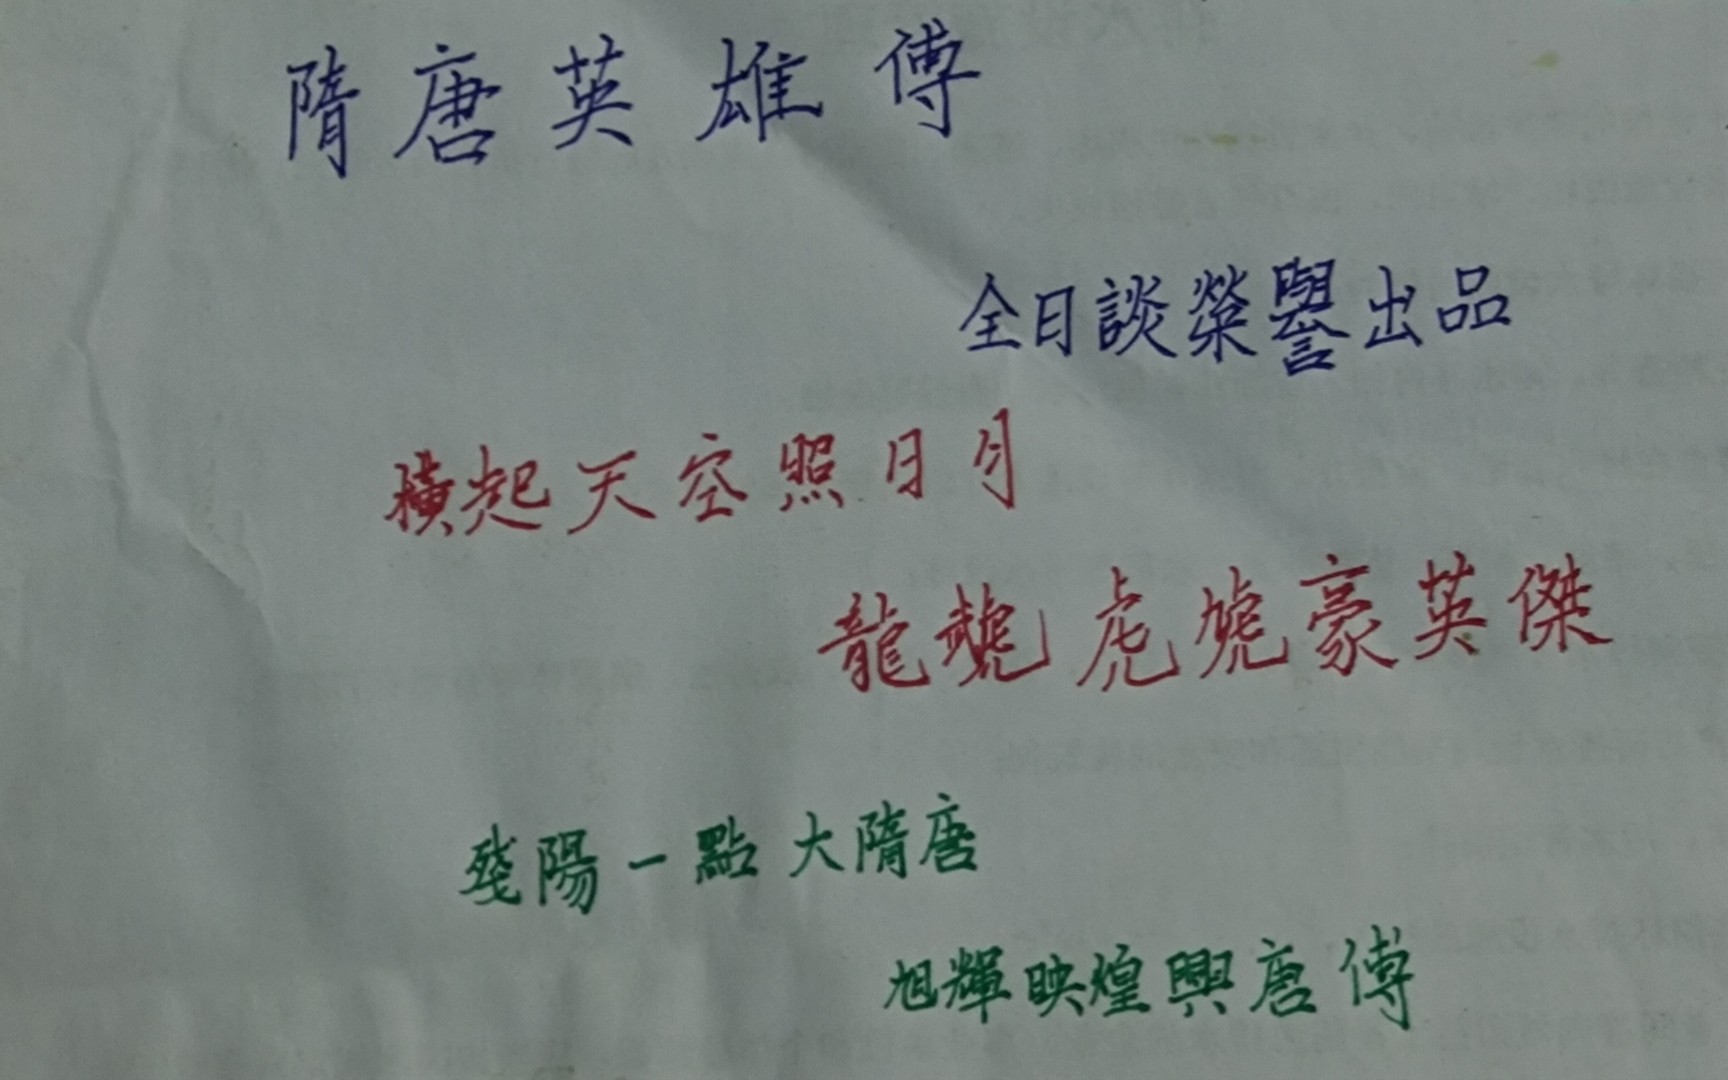 隋唐英雄傅
全日談榮譽出品
橫起天空照日月
龍虣虎虓豪英傑
殘陽一點大隋唐
旭輝映煌興唐傅